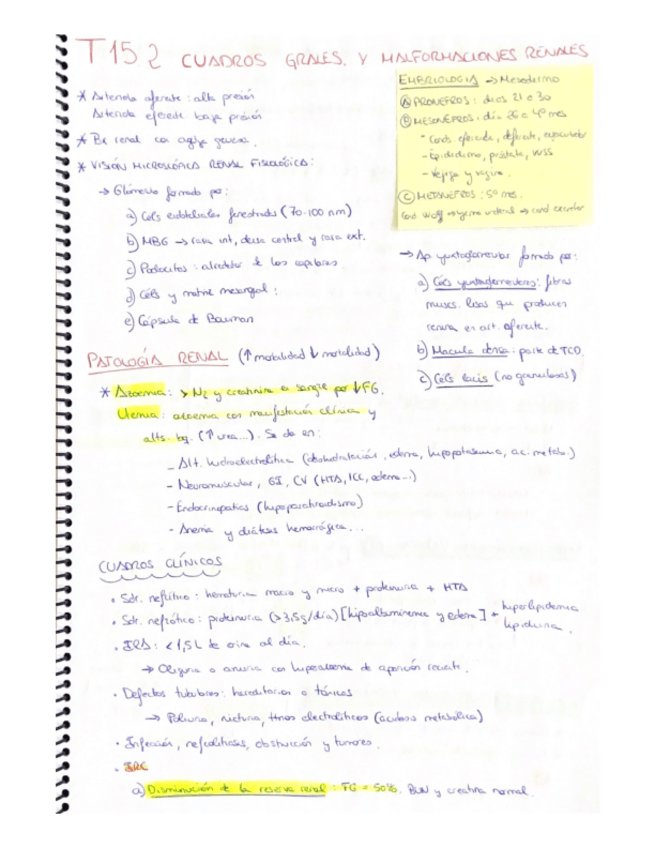 T15.2 CUADROS GRALES. Y MALFORMACIONES RENALES
* Arteriola aferente: alta presión
Arteriola eferente baja presión
* Bx renal con aguja gruesa.
* VISIÓN MICROSCÓPICA RENAL FISIOLÓGICA:
→ Glomérulo formado por:
a) Cels endoteliales fenestradas (70-100 nm)
b) MBG → rara int, densa central y rara ext.
c) Podocitos: alrededor de los capilares
d) Céls y matriz mesangial:
e) Cápsula de Bowman
EMBRIOLOGIA → Mesodermo
Ⓐ PRONEFROS: días 21 o 30
Ⓑ MESONÉFROS: día 26 a 4º mes
- Cond. eferente, deferente, eyaculador
- Epidídimo, próstata, VVSS
- Vejiga y vagina.
Ⓒ METANÉFROS: 5º mes.
Cond. Wolff → yema ureteral → cond. colector
→ Ap. yuxtaglomerular formado por:
a) Cels yuxtaglomerulares: fibras
musc. lisas que producen
renina en art. aferente.
b) Macula densa: parte de TCD.
c) Cels lacis (no granulosas)
PATOLOGÍA RENAL (↑ morbilidad ↓ mortalidad)
* Azoemia: > N2 y creatinina en sangre por ↓FG.
Uremia: azoemia con manifestación clínica y
alts. bq. (↑ urea...). Se da en:
- Alt. hidroelectrolítica (deshidratación, edema, hiperpotasemia, ac. metab.)
- Neuromuscular, GI, CV (HTA, ICC, edema...)
- Endocrinopatías (hipoparatiroidismo)
- Anemia y diátesis hemorrágica...
CUADROS CLÍNICOS
• Sdr. nefrítico: hematuria macro y micro + proteinuria + HTA
• Sdr. nefrótico: proteinuria (>3,5g/día) [hipoalbuminemia y edema] + hiperlipidemia
lipiduria.
• IRA: <1,5L de orina al día.
→ Oliguria o anuria con hiperazoemia de aparición reciente.
• Defectos tubulares: hereditarios o tóxicos
→ Poliuria, nicturia, ttnos electrolíticos (acidosis metabólica)
• Infección, nefrolitiasis, obstrucción y tumores.
• IRC
a) Disminución de la reserva renal: FG = 50%. BUN y creatina normal.